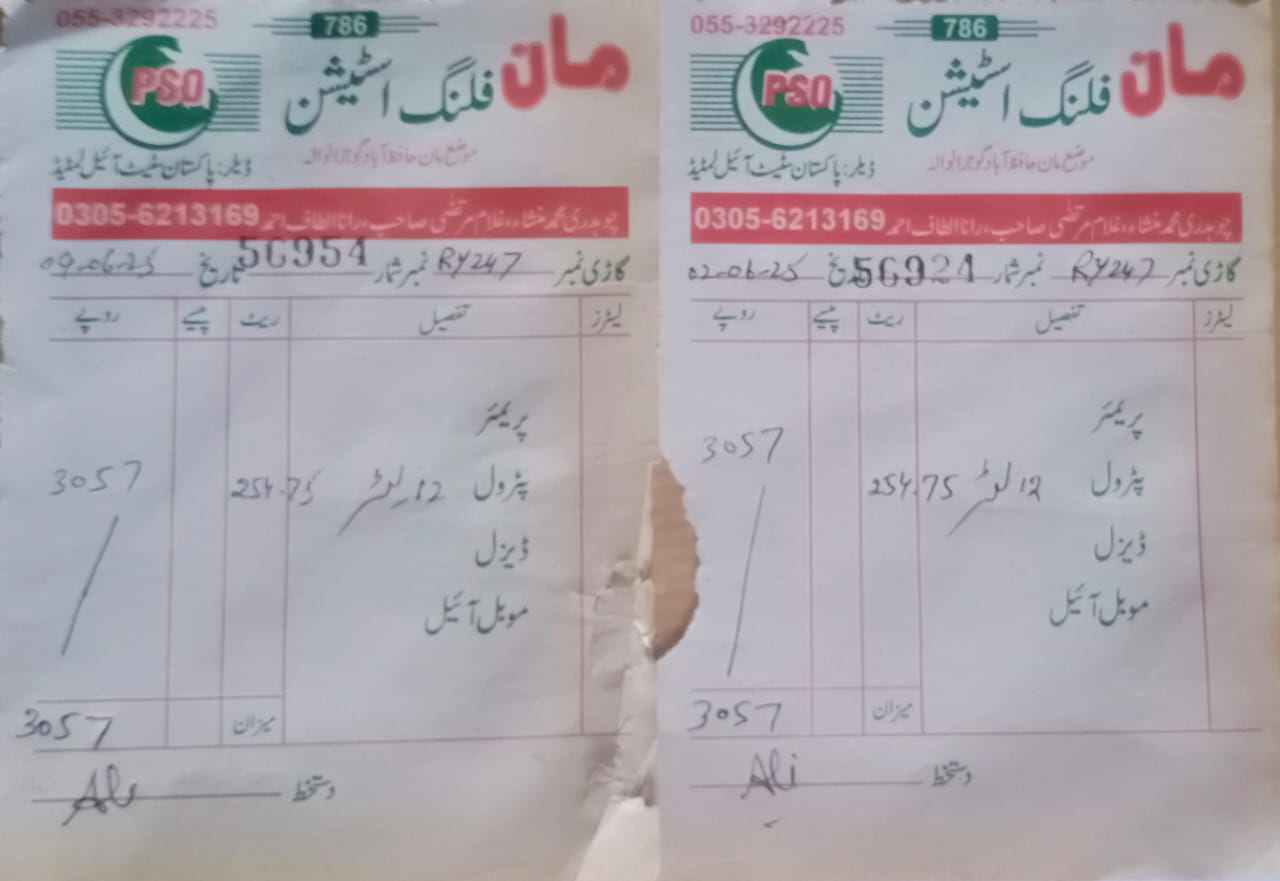 055-3292225
786
PSO
مان فلنگ اسٹیشن
موضع مان حافظ آباد گوجرانوالہ
ڈیلر: پاکستان سٹیٹ آئیل لمٹیڈ
چوہدری محمد منشاء، غلام مرتضٰی صاحب، رانا الطاف احمد 0305-6213169
گاڑی نمبر RY247 نمبر شمار 56954 تاریخ 09-06-25
لیٹرز تفصیل ریٹ پیسے روپے
پریمئر
پٹرول 12 لیٹر 254.75 3057
ڈیزل
موبل آئیل
میزان 3057
دستخط Ali
055-3292225
786
PSO
مان فلنگ اسٹیشن
موضع مان حافظ آباد گوجرانوالہ
ڈیلر: پاکستان سٹیٹ آئیل لمٹیڈ
چوہدری محمد منشاء، غلام مرتضٰی صاحب، رانا الطاف احمد 0305-6213169
گاڑی نمبر RY247 نمبر شمار 56924 تاریخ 02-06-25
لیٹرز تفصیل ریٹ پیسے روپے
پریمئر
پٹرول 12 لیٹر 254.75 3057
ڈیزل
موبل آئیل
میزان 3057
دستخط Ali